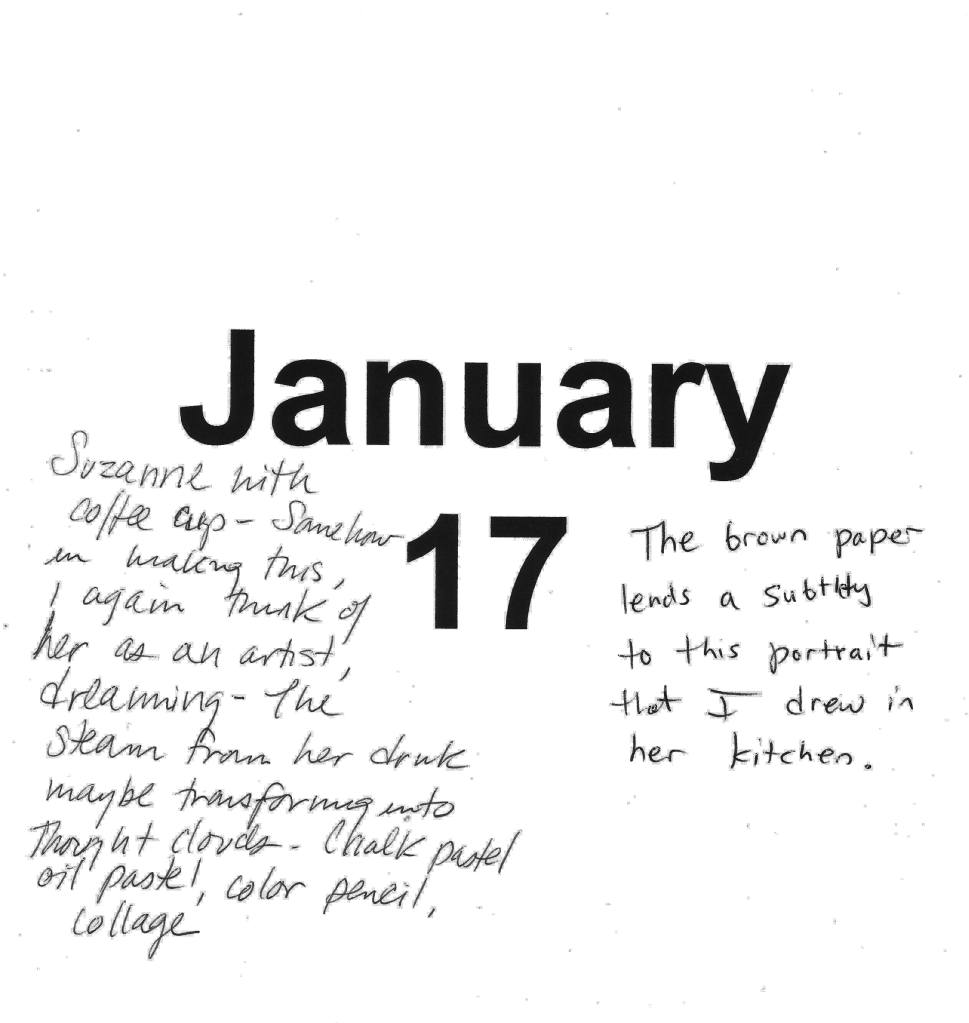 January
17
Suzanne with
coffee cup - Somehow
in making this,
I again think of
her as an artist,
dreaming - The
steam from her drink
maybe transforming into
Thought clouds - Chalk pastel
oil pastel, color pencil,
collage
The brown paper
lends a subtlty
to this portrait
that I drew in
her kitchen.